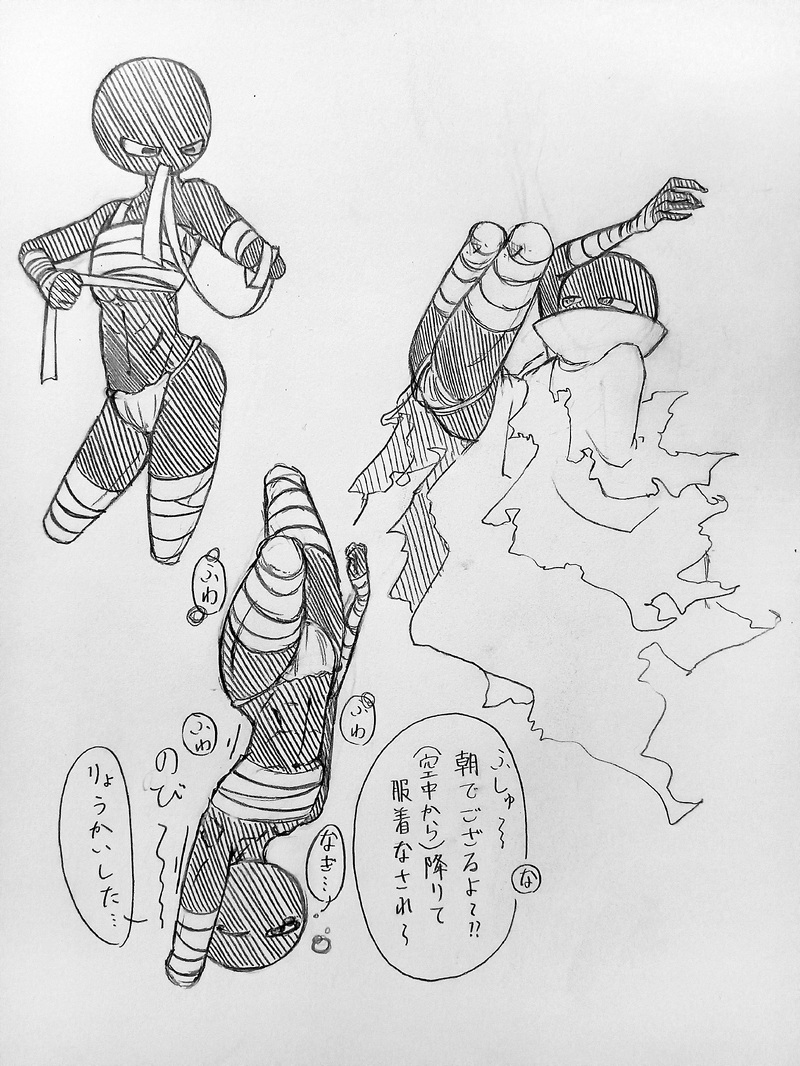 ふしゅ～
朝でござるよ～⁇
(空中から)降りて
服着なされ～
な
ふわ
ふわ
ふわ
なぎ…
のび～
りょうかいした…